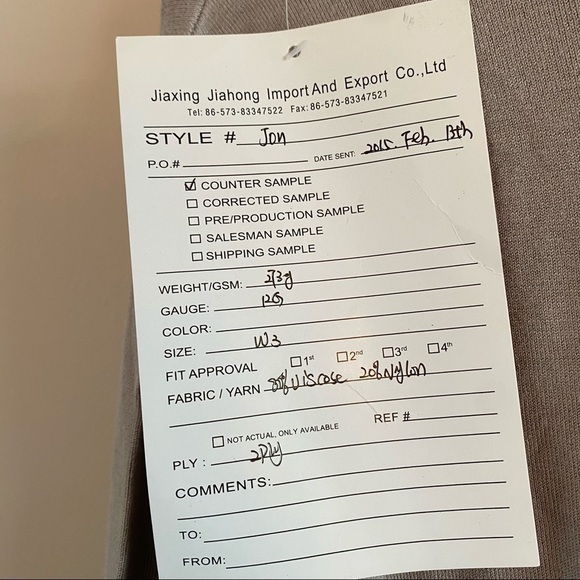 Jiaxing Jiahong Import And Export Co.,Ltd
Tel: 86-573-83347522 Fax: 86-573-83347521
STYLE # Jon
P.O.# DATE SENT: 2015. Feb. 13th
☑ COUNTER SAMPLE
☐ CORRECTED SAMPLE
☐ PRE/PRODUCTION SAMPLE
☐ SALESMAN SAMPLE
☐ SHIPPING SAMPLE
WEIGHT/GSM: 273g
GAUGE: 12G
COLOR:
SIZE: W3
FIT APPROVAL ☐ 1st ☐ 2nd ☐ 3rd ☐ 4th
FABRIC / YARN 80% Viscose 20% Nylon
REF #
☐ NOT ACTUAL, ONLY AVAILABLE
PLY : 2Ply
COMMENTS:
TO:
FROM: